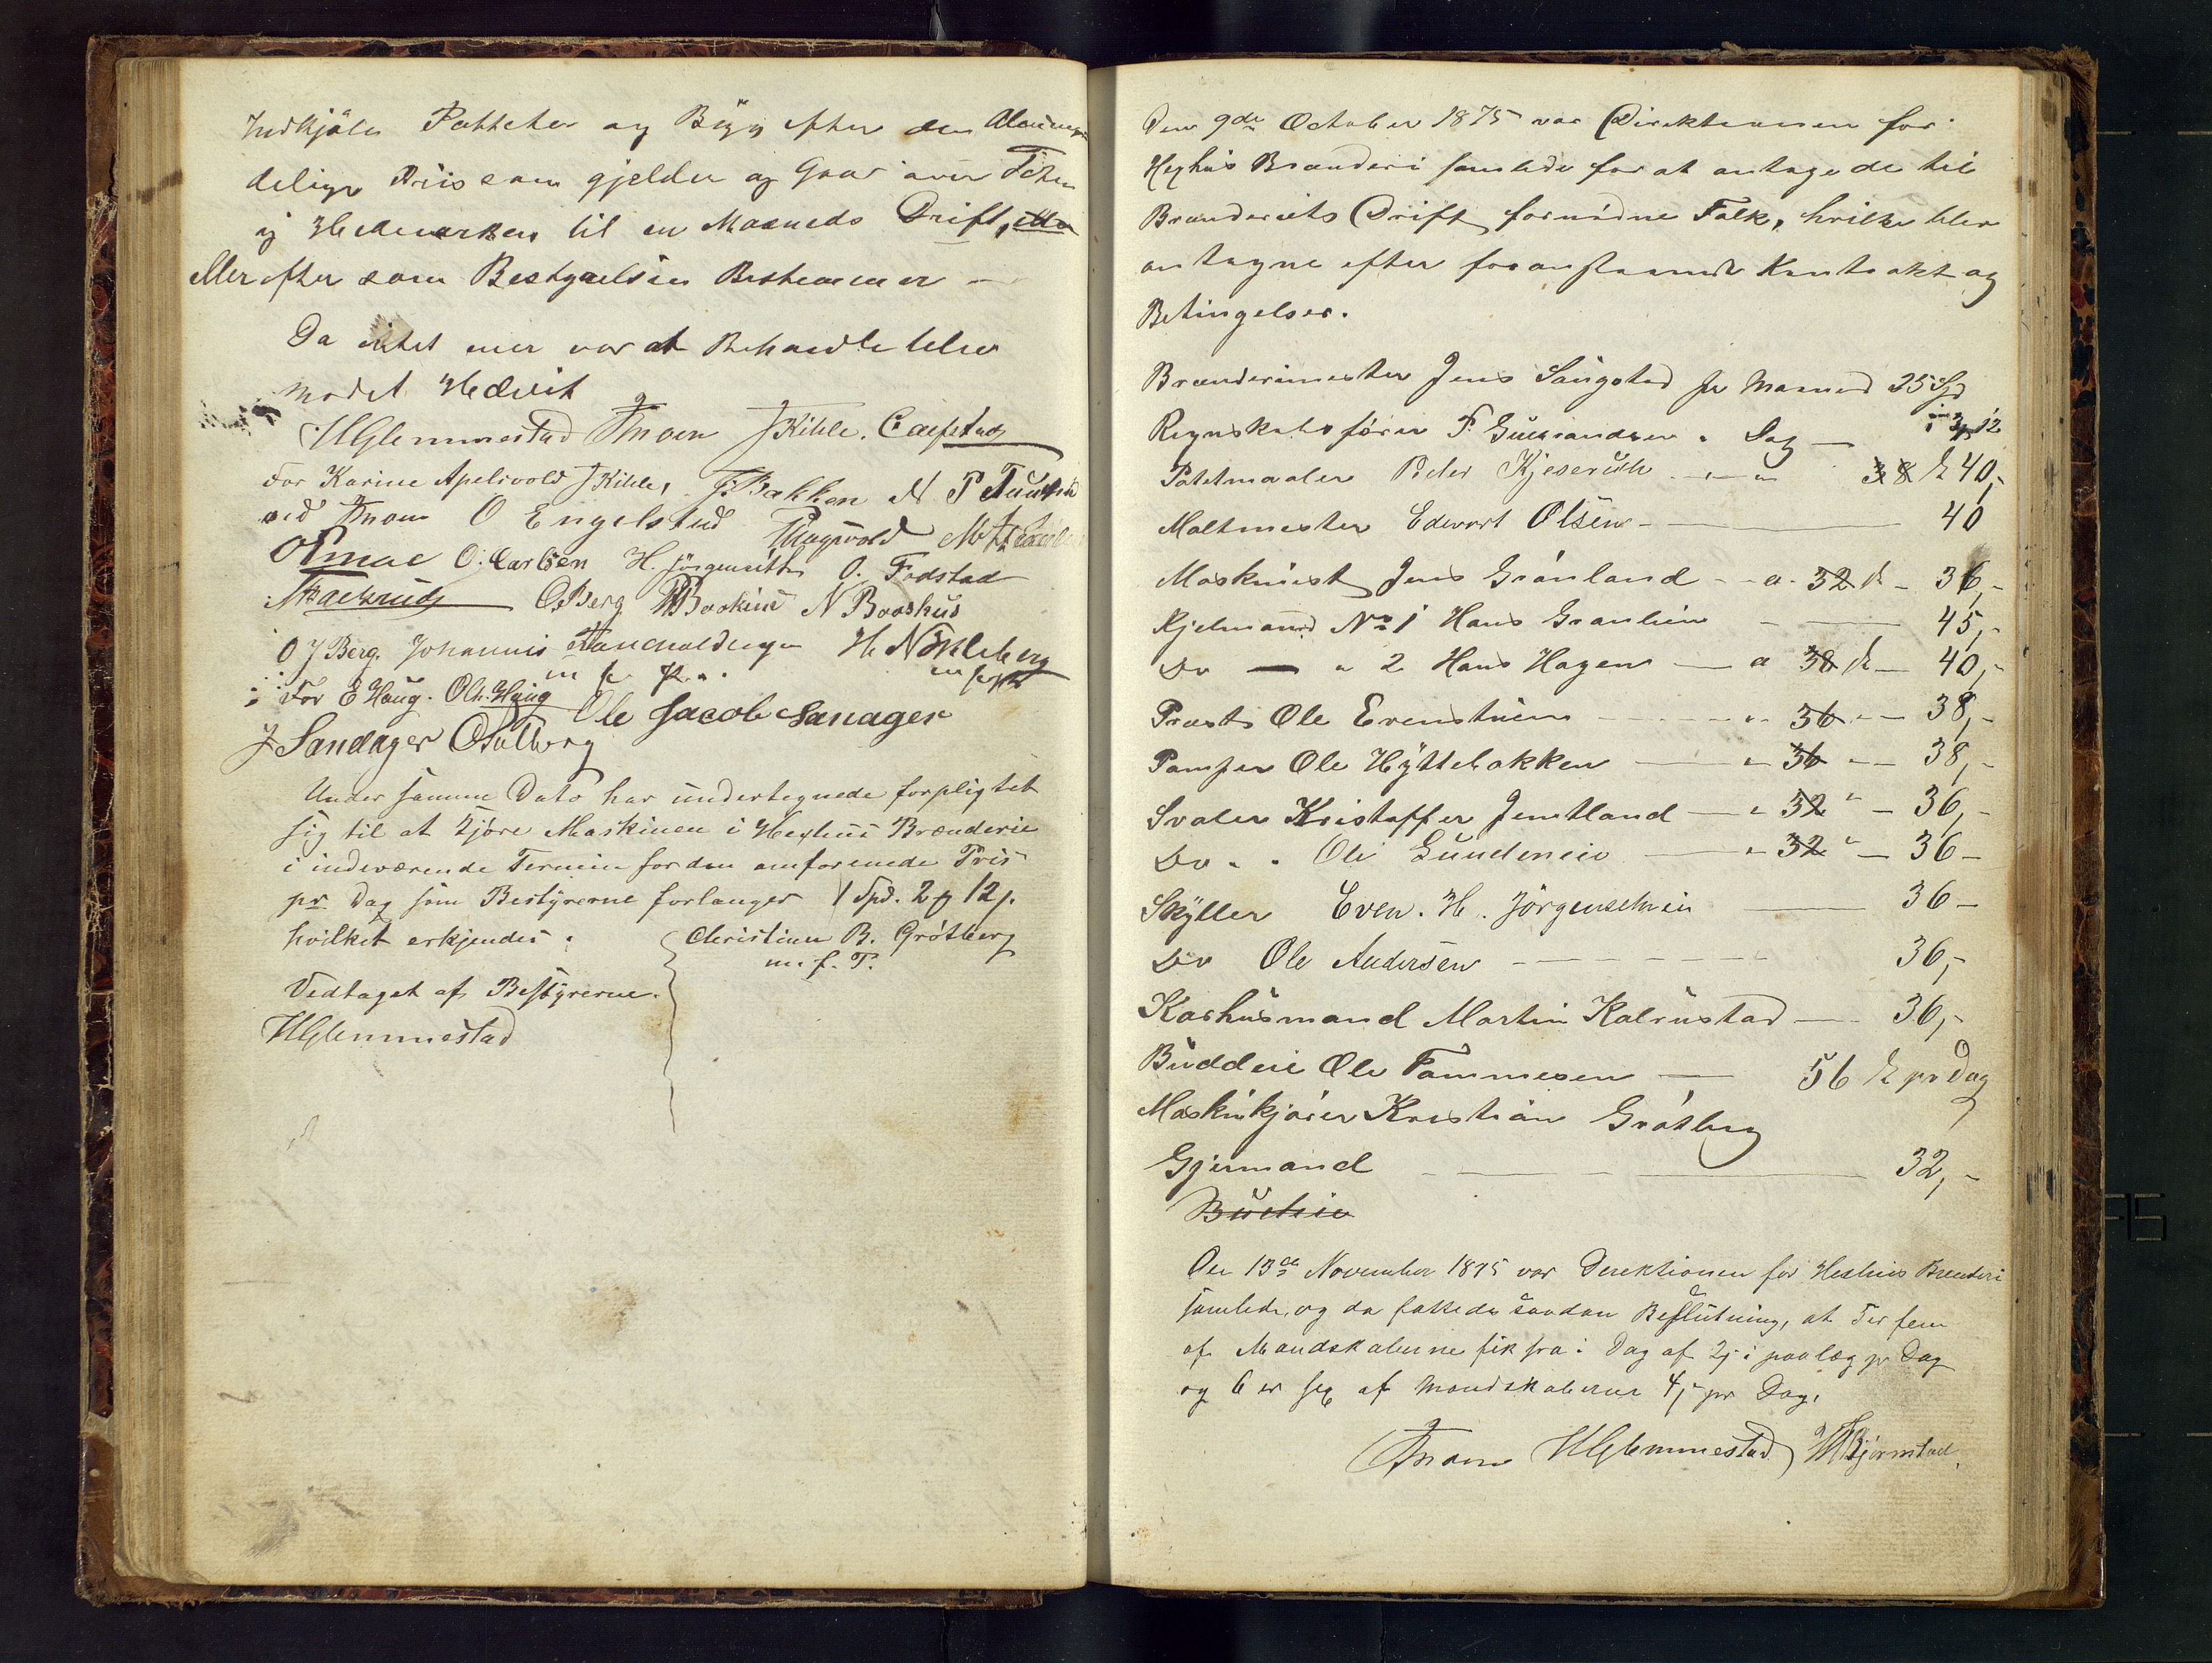 Indkjöbe Potteter og Bÿg efter den Almind
delige Priis som gjelder og Gaar over Toten
og Hedemarken til en Maaneds Drift,
eller efter som Bestyrelsen Bestemmer –
Da intet mer var at Behandle blev
Modet Hedvit
HGlemmestad JKihle.
For Karine Apelsvold JKihle, J. Bakken N P
ved O Engelstud Thugvold
O. Carlsen H. O. Fodstad
OBerg N Booshus
O J Berg. Johannis H. Nökleberg
For E Haug. Ole Haug m f P.
J Sandager OSolberg Ole Jacob Sanager
Under samme Dato har undertegnede forpligtet
sig til at kjøre Maskinen i Hexhus Brænderie
i indeværende Termin for den omforenede Pris
pr Dag som Bestyrerne forlanger 1 Spd. 2 12
hvilket erkjendes: Christian B. Grötberg
m. f. P.
Vedtaget af Bestyrerne.
HGlemmestad
Den 9de October 1875 var Direktionen for
Hexhus Brænderi samlede for at antage de til
Brænderiets Drift fornödne Folk, hvilke blev
antagne efter foranstaaende Kontrakt og
Betingelser.
Brænderimester Jens Sangstad pr Maaned 25 Spd
Regnskabsförer P. Gulbrandsen " Dag – 12
Potetmaaler Peder Kjeserud 38 40,-
Maltmester Edevart Olsen – 40
Maskinist Jens Grönland – a 32 – 36,-
Kjelmand No 1 Hans Granlien – 45,-
Do – " 2 Hans Hagen – a 38 – 40,-
Prøst Ole Evenstuen – " 36 – 38,-
Pamper Ole Hÿttebakken – " 36 – 38,-
Svaler Kristoffer Jemtland – " 32 " – 36,-
Do " " Ole Gundeneie – " 32 " – 36 –
Skÿller Even. H. Jörgenseneie – 36 –
Do Ole Andersen – 36,-
Karhusmand Martin Kalrustad – 36,-
Buddeie Ole Tommesen – 56 pr Dag
Maskinkjörer Kristian Grötberg
Gjermand – 32,-
Den 13de November 1875 var Direktionen for Hexhus Brænderi
samlede, og da fattedes saadan Beslutning, at 5er fem
af Mandskaberne fik fra i Dag af 2 i paalæg pr Dag
og 6 er sex af Mandskaberne 4 pr Dag.
HGlemmestad HBjørnstad.